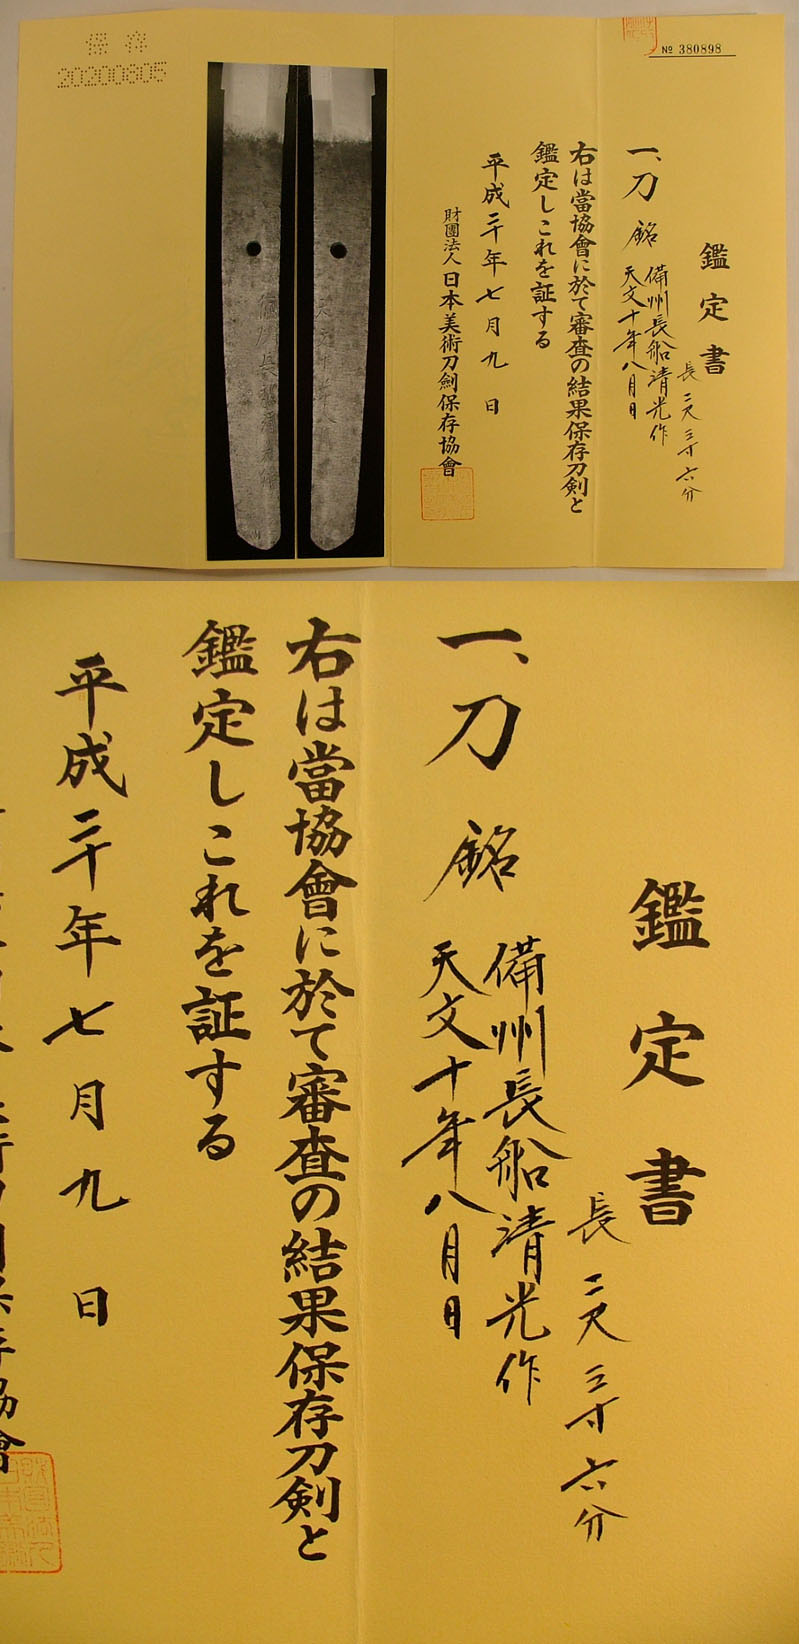 № 380898
鑑定書
長二尺三寸六分
一、刀 銘 備州長船清光作
天文十年八月日
右は當協會に於て審査の結果保存刀剣と
鑑定しこれを証する
平成二十年七月九日
財團法人 日本美術刀劍保存協會
保存
20200805
鑑定書
長二尺三寸六分
一、刀 銘 備州長船清光作
天文十年八月日
右は當協會に於て審査の結果保存刀剣と
鑑定しこれを証する
平成二十年七月九日